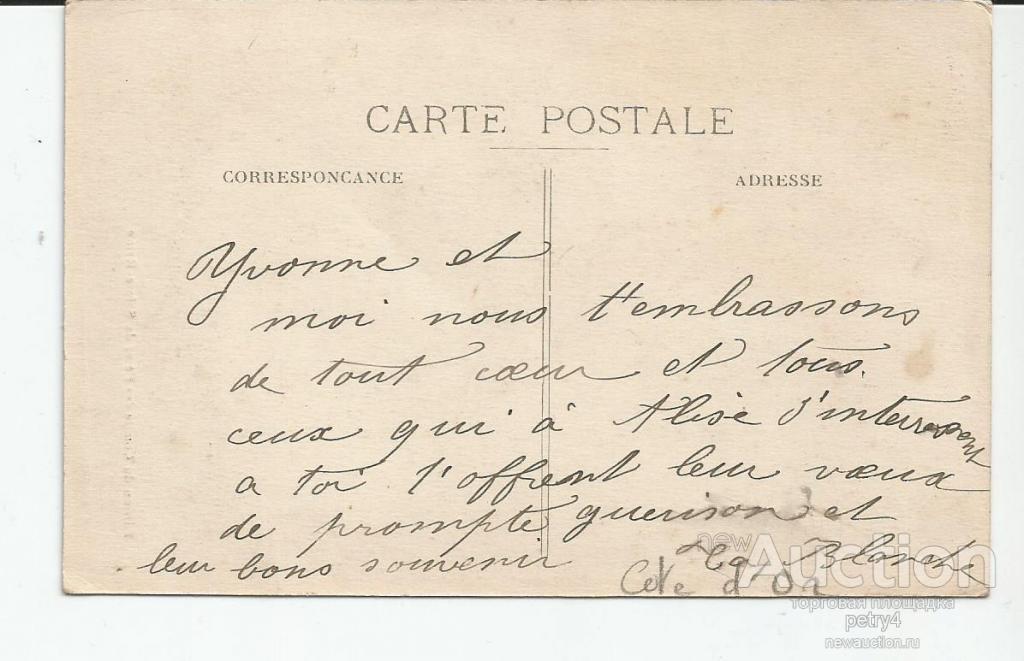 CARTE POSTALE
CORRESPONCANCE
ADRESSE
Yvonne et
moi nous t'embrassons
de tout cœur et tous
ceux qui à Alise s'interressent
a toi t'offrent leur vœux
de prompte guerison et
leur bons souvenir
Ta Blanche
Cote d'Or
newAuction
торговая площадка
petry4
newauction.ru